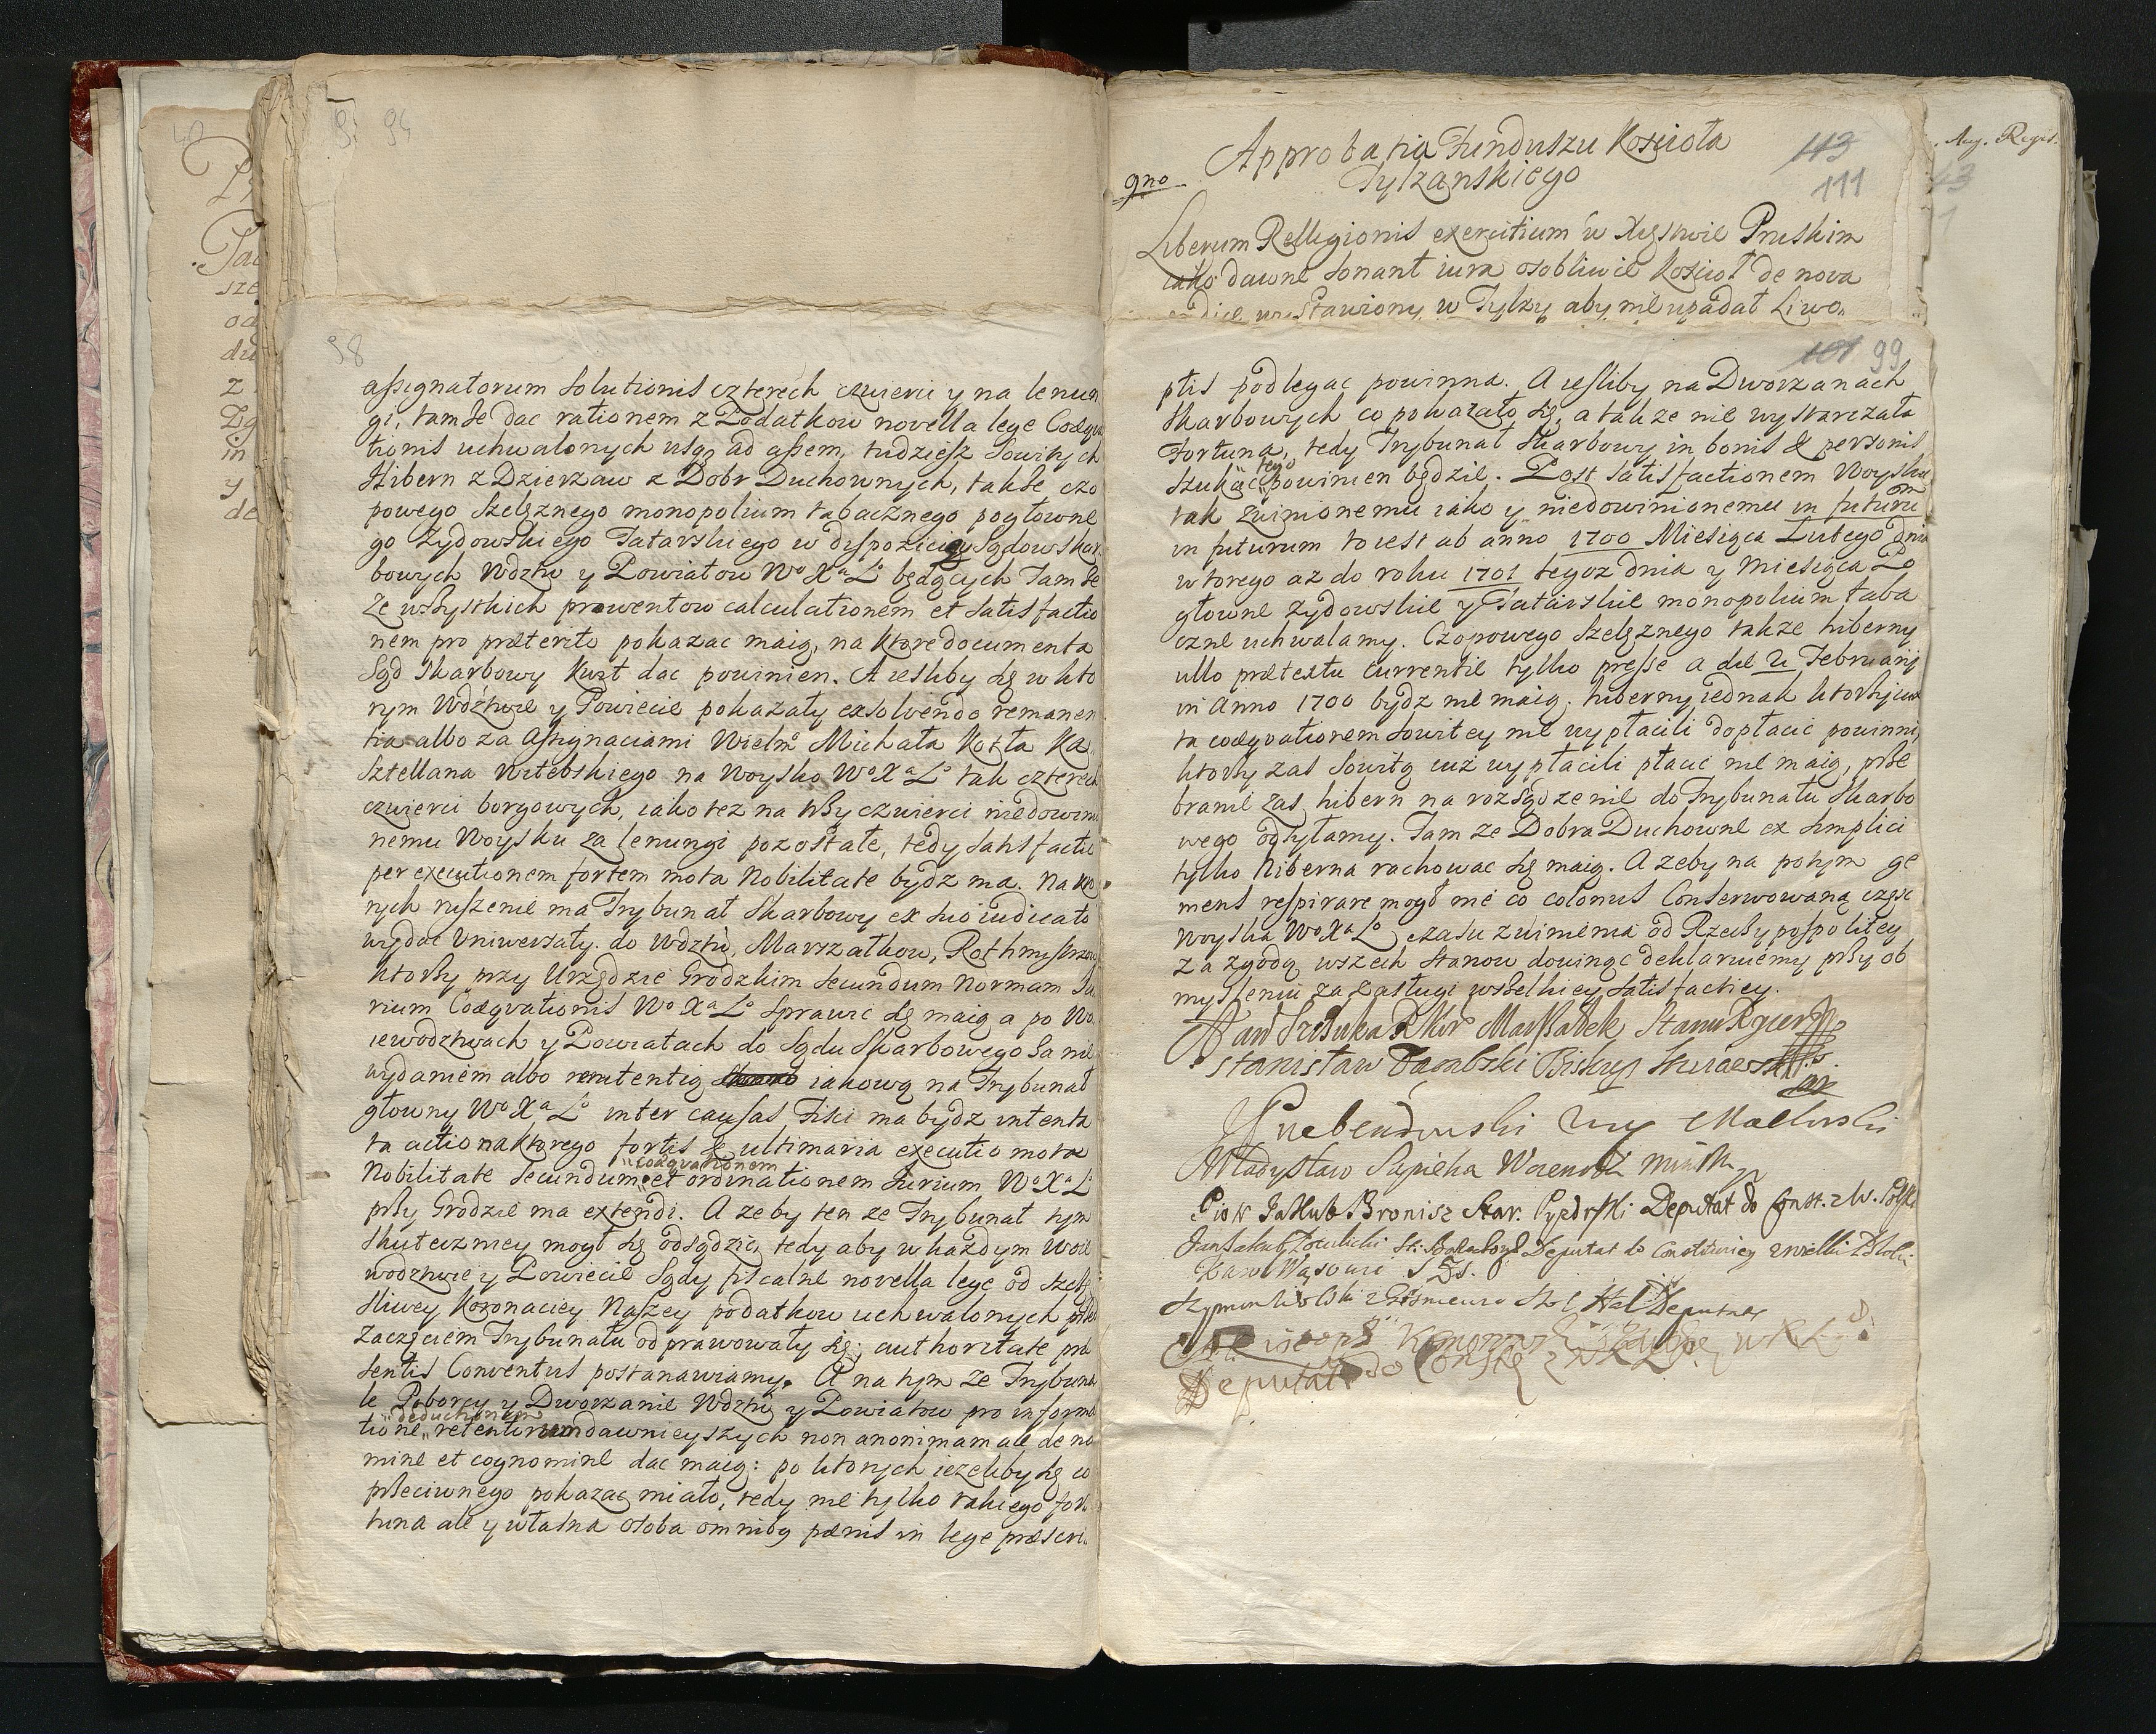 94
98
assignatorum solutionis czterech czwierci y na lenun
gi, tamże dac rationem z Podatkow novella lege Coæqua
tionis uchwalonych usq, ad assem, tudziesz Sowitych
Hibern z Dzierzaw z Dobr Duchownych, takze czo
powego Szelęznego monopolium tabacznego pogłowne
go Zydowskiego Tatarskiego w dyspozicyi Sądow skar
bowych Wdztw y Powiatow Wo Xa Lo będących Tamże
ze wszystkich prowentow calculationem et satisfactio
nem pro præterito pokazac maią, na ktore documenta
Sąd Skarbowy Kwit dac powinien. A iesliby się w kto
rym Wdztwie y Powiecie pokazały exsolvendo remanen
tia albo za Assignaciami Wielmo Michała Kotła Ka
sztellana Witebskiego na Woysko Wo Xa Lo tak czterech
czwierci borgowych, iako tez na trzy czwierci niedowini
nemu Woysku za lenungi pozostałe, tedy satisfactio
per executionem fortem mota Nobilitate bydz ma. Na kto
rych ruszenie ma Trybunał Skarbowy ex suo iudicato
wydac Uniwersały do Wdztw, Marszałkow, Rothmistrzow
ktorzy przy Urzędzie Grodzkim secundum Normam Iu
rium Coæqvationis Wo Xa Lo sprawic się maią a po Wo
iewodztwach y Powiatach do Sądu Skarbowego Za nie
wydaniem albo renitentią iakową na Trybunał
głowny Wo Xa Lo inter causas Fisci ma bydz intenta
ta actio na ktorego fortis & ultimaria executio mota
coæqvationem
Nobilitate secundum et ordinationem Iurium Wo Xa Lo
przy Grodzie ma extendi. A zeby ten ze Trybunał tym
skuteczniey mogł się odsądzic, tedy aby w kazdym Woie
wodztwie y Powiecie Sądy fiscalne novella lege od szczę
sliwey Koronaciey Naszey podatkow uchwalonych przed
Zaczęciem Trybunału odprawowały się; authoritate præ
sentis Conventus postanawiamy. A na tym ze Trybuna
le Poborcy y Dworzanie Wdztw y Powiatow pro informa
deductionem
tione, retentorum dawnieyszych non anonimam ale de no
mine et cognomine dac maią: po ktorych iezeliby się co
przeciwnego pokazac miało, tedy nie tylko takiego for
tuna ale y własna osoba omnibq pænis in lege præscri
Approbatia Funduszu Koscioła
Tylzanskiego
9no
113
111
Liberum Relligionis exercitium w Xięstwie Pruskim
iako dawne sonant iura osobliwie Koscioł de nova
wystawiony w Tylzy aby nie upadał Liwo
101 99
ptis podlegac powinna. A iesliby na Dworzanach
Skarbowych co pokazało się, a takze nie wystarczała
Fortuna, tedy Trybunał Skarbowy in bonis & personis
tego
szukac powinien będzie. Post satisfactionem Woysku
tak zwinionemu iako y niedowinionemu in futurum
in futurum to iest ab anno 1700 Miesiąca Lutego dnia
wtorego az do roku 1701 tegoz dnia y Miesiąca Po
głowne Zydowskie y Tatarskie monopolium taba
czne uchwalamy. Czopowego Szelęznego takze hiberny
ullo prætextu currentie tylko presse a die 2i Februarij
in Anno 1700 bydz nie maią, hiberny iednak ktorzy iux
ta coæqvationem Sowitey nie wypłacili dopłacic powinni,
ktorzy zas Sowitą iuż wypłacili płacic nie maią, prze
branie zas hibern na rozsądzenie do Trybunału Skarbo
wego odsyłamy. Tam ze Dobra Duchowne ex simplici
tylko hiberna rachowac się maią. A zeby na potym ge
mens respirare mogł nie co colonus Conserwowaną częsc
Woyska Wo Xa Lo czasu zwinienia od Rzeczypospolitey
za zgodą wszech stanow dowinąc deklaruiemy przy ob
mysleniu za Zasługi wszelkiey satisfactiey.
Jan Szczuka Marszałek Stanu Rycer
Stanisław Dąbski Biskup
Przebendowski
Władysław Sapieha
Piotr Jakub Bronisz Star. Pyzdrski Deputat do Const. z W. Polski
Deputat do Constituciey z wielki Polski
Karol
Szymon
Deputat do Const z W X L
Aug. Regis.